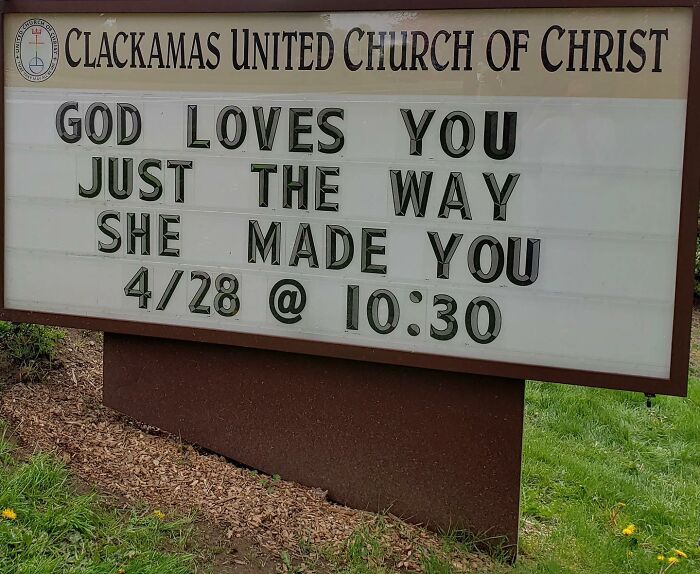 CLACKAMAS UNITED CHURCH OF CHRIST
GOD LOVES YOU
JUST THE WAY
SHE MADE YOU
4/28 @ 10:30